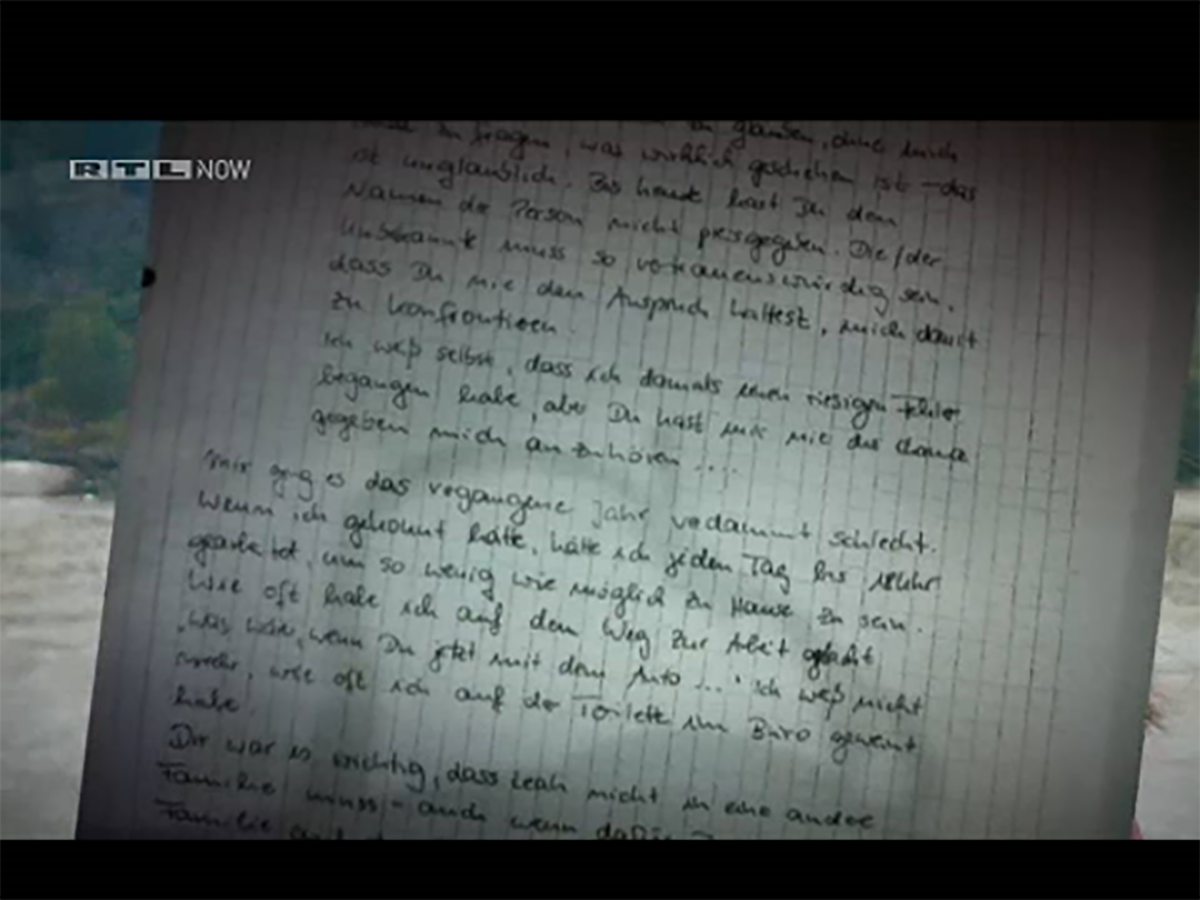 RTL NOW
glauben, ohne mich
zu fragen, was wirklich geschehen ist - das
ist unglaublich. Bis heute hast Du den
Namen der Person nicht preisgegeben. Die/der
Unbekannte muss so vertrauenswürdig sein,
dass Du nie den Anspruch hattest, mich damit
zu konfrontieren.
Ich weiß selbst, dass ich damals einen riesigen Fehler
begangen habe, aber Du hast mir nie die Chance
gegeben mich anzuhören ....
Mir ging es das vergangene Jahr verdammt schlecht.
Wenn ich gekonnt hätte, hätte ich jeden Tag bis
gearbeitet, um so wenig wie möglich zu Hause zu sein.
Wie oft habe ich auf dem Weg zur Arbeit gedacht
"was wäre, wenn Du jetzt mit dem Auto ..." Ich weiß nicht
mehr, wie oft ich auf der Toilette im Büro geweint
habe.
Dir war es wichtig, dass Leah nicht in eine andere
Familie muss - auch wenn dafür
Familie